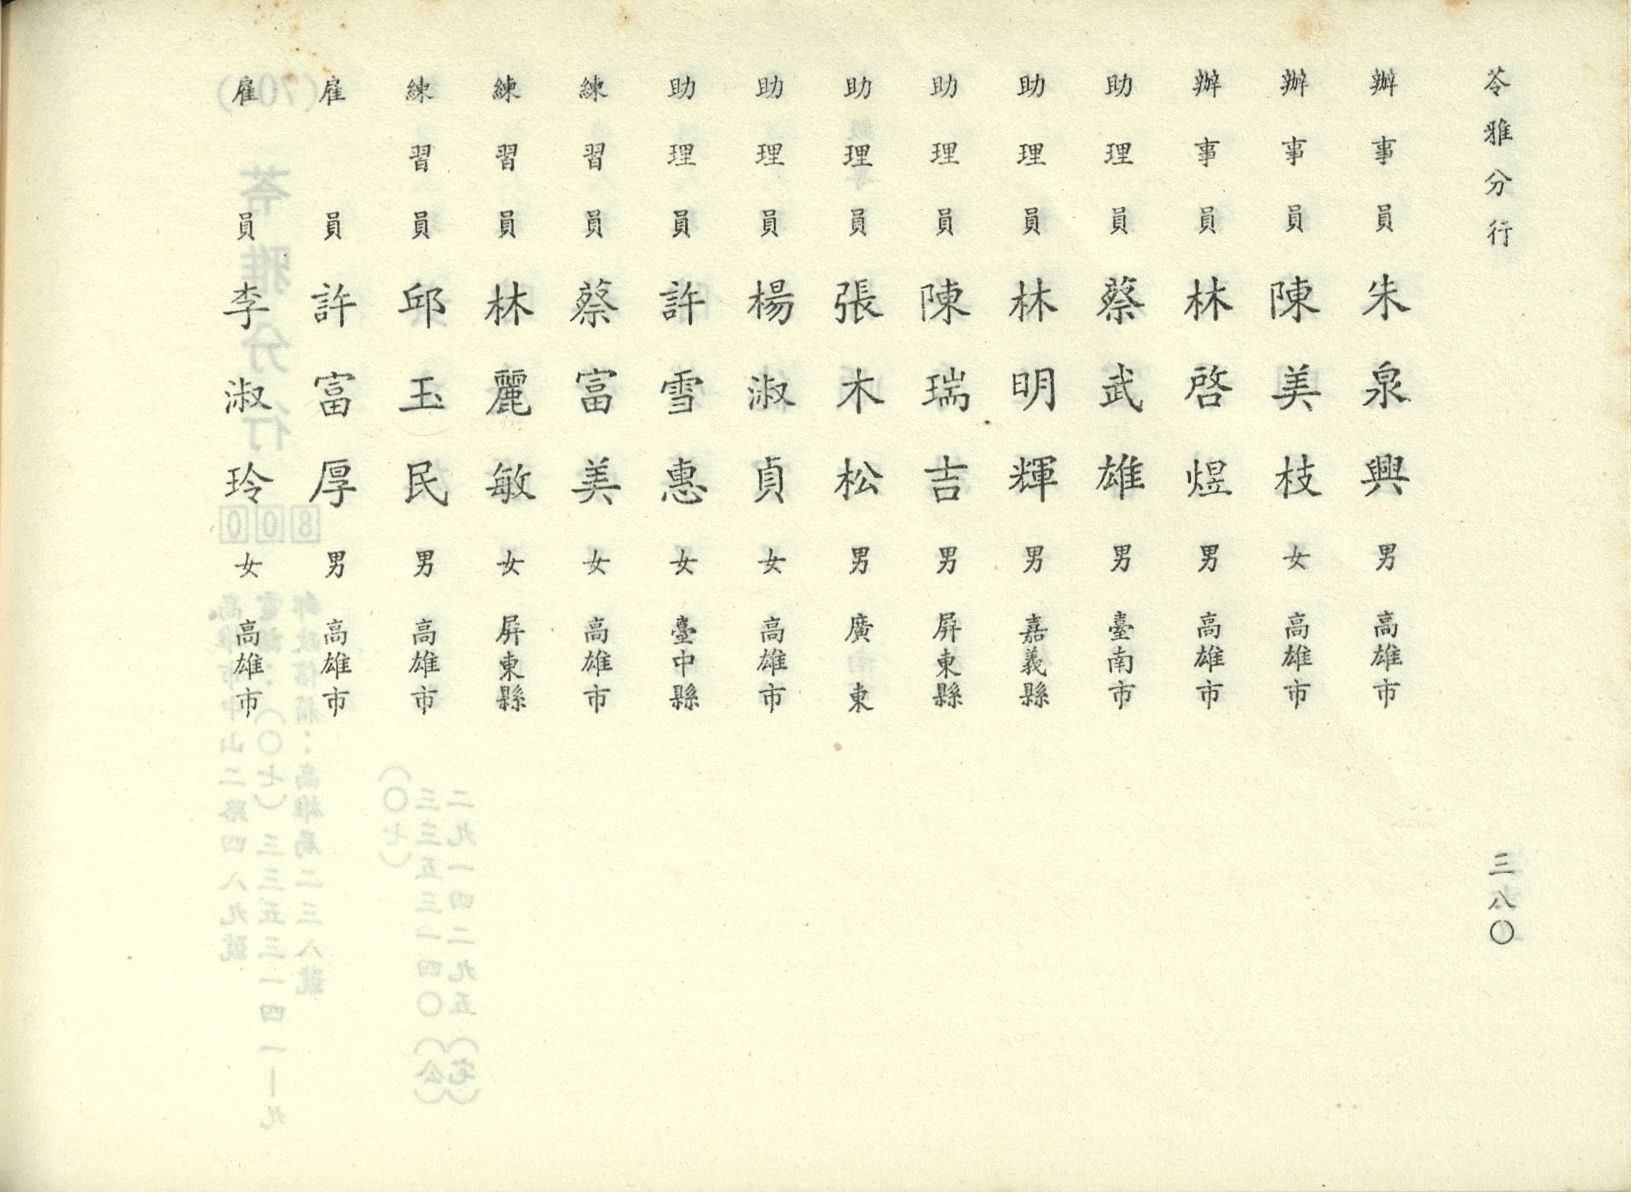 苓雅分行
三八〇
辦事員 朱泉興 男 高雄市
辦事員 陳美枝 女 高雄市
辦事員 林啓煜 男 高雄市
助理員 蔡武雄 男 臺南市
助理員 林明輝 男 嘉義縣
助理員 陳瑞吉 男 屏東縣
助理員 張木松 男 廣東
助理員 楊淑貞 女 高雄市
助理員 許雪惠 女 臺中縣
練習員 蔡富美 女 高雄市
練習員 林麗敏 女 屏東縣
練習員 邱玉民 男 高雄市
雇員 許富厚 男 高雄市
雇員 李淑玲 女 高雄市